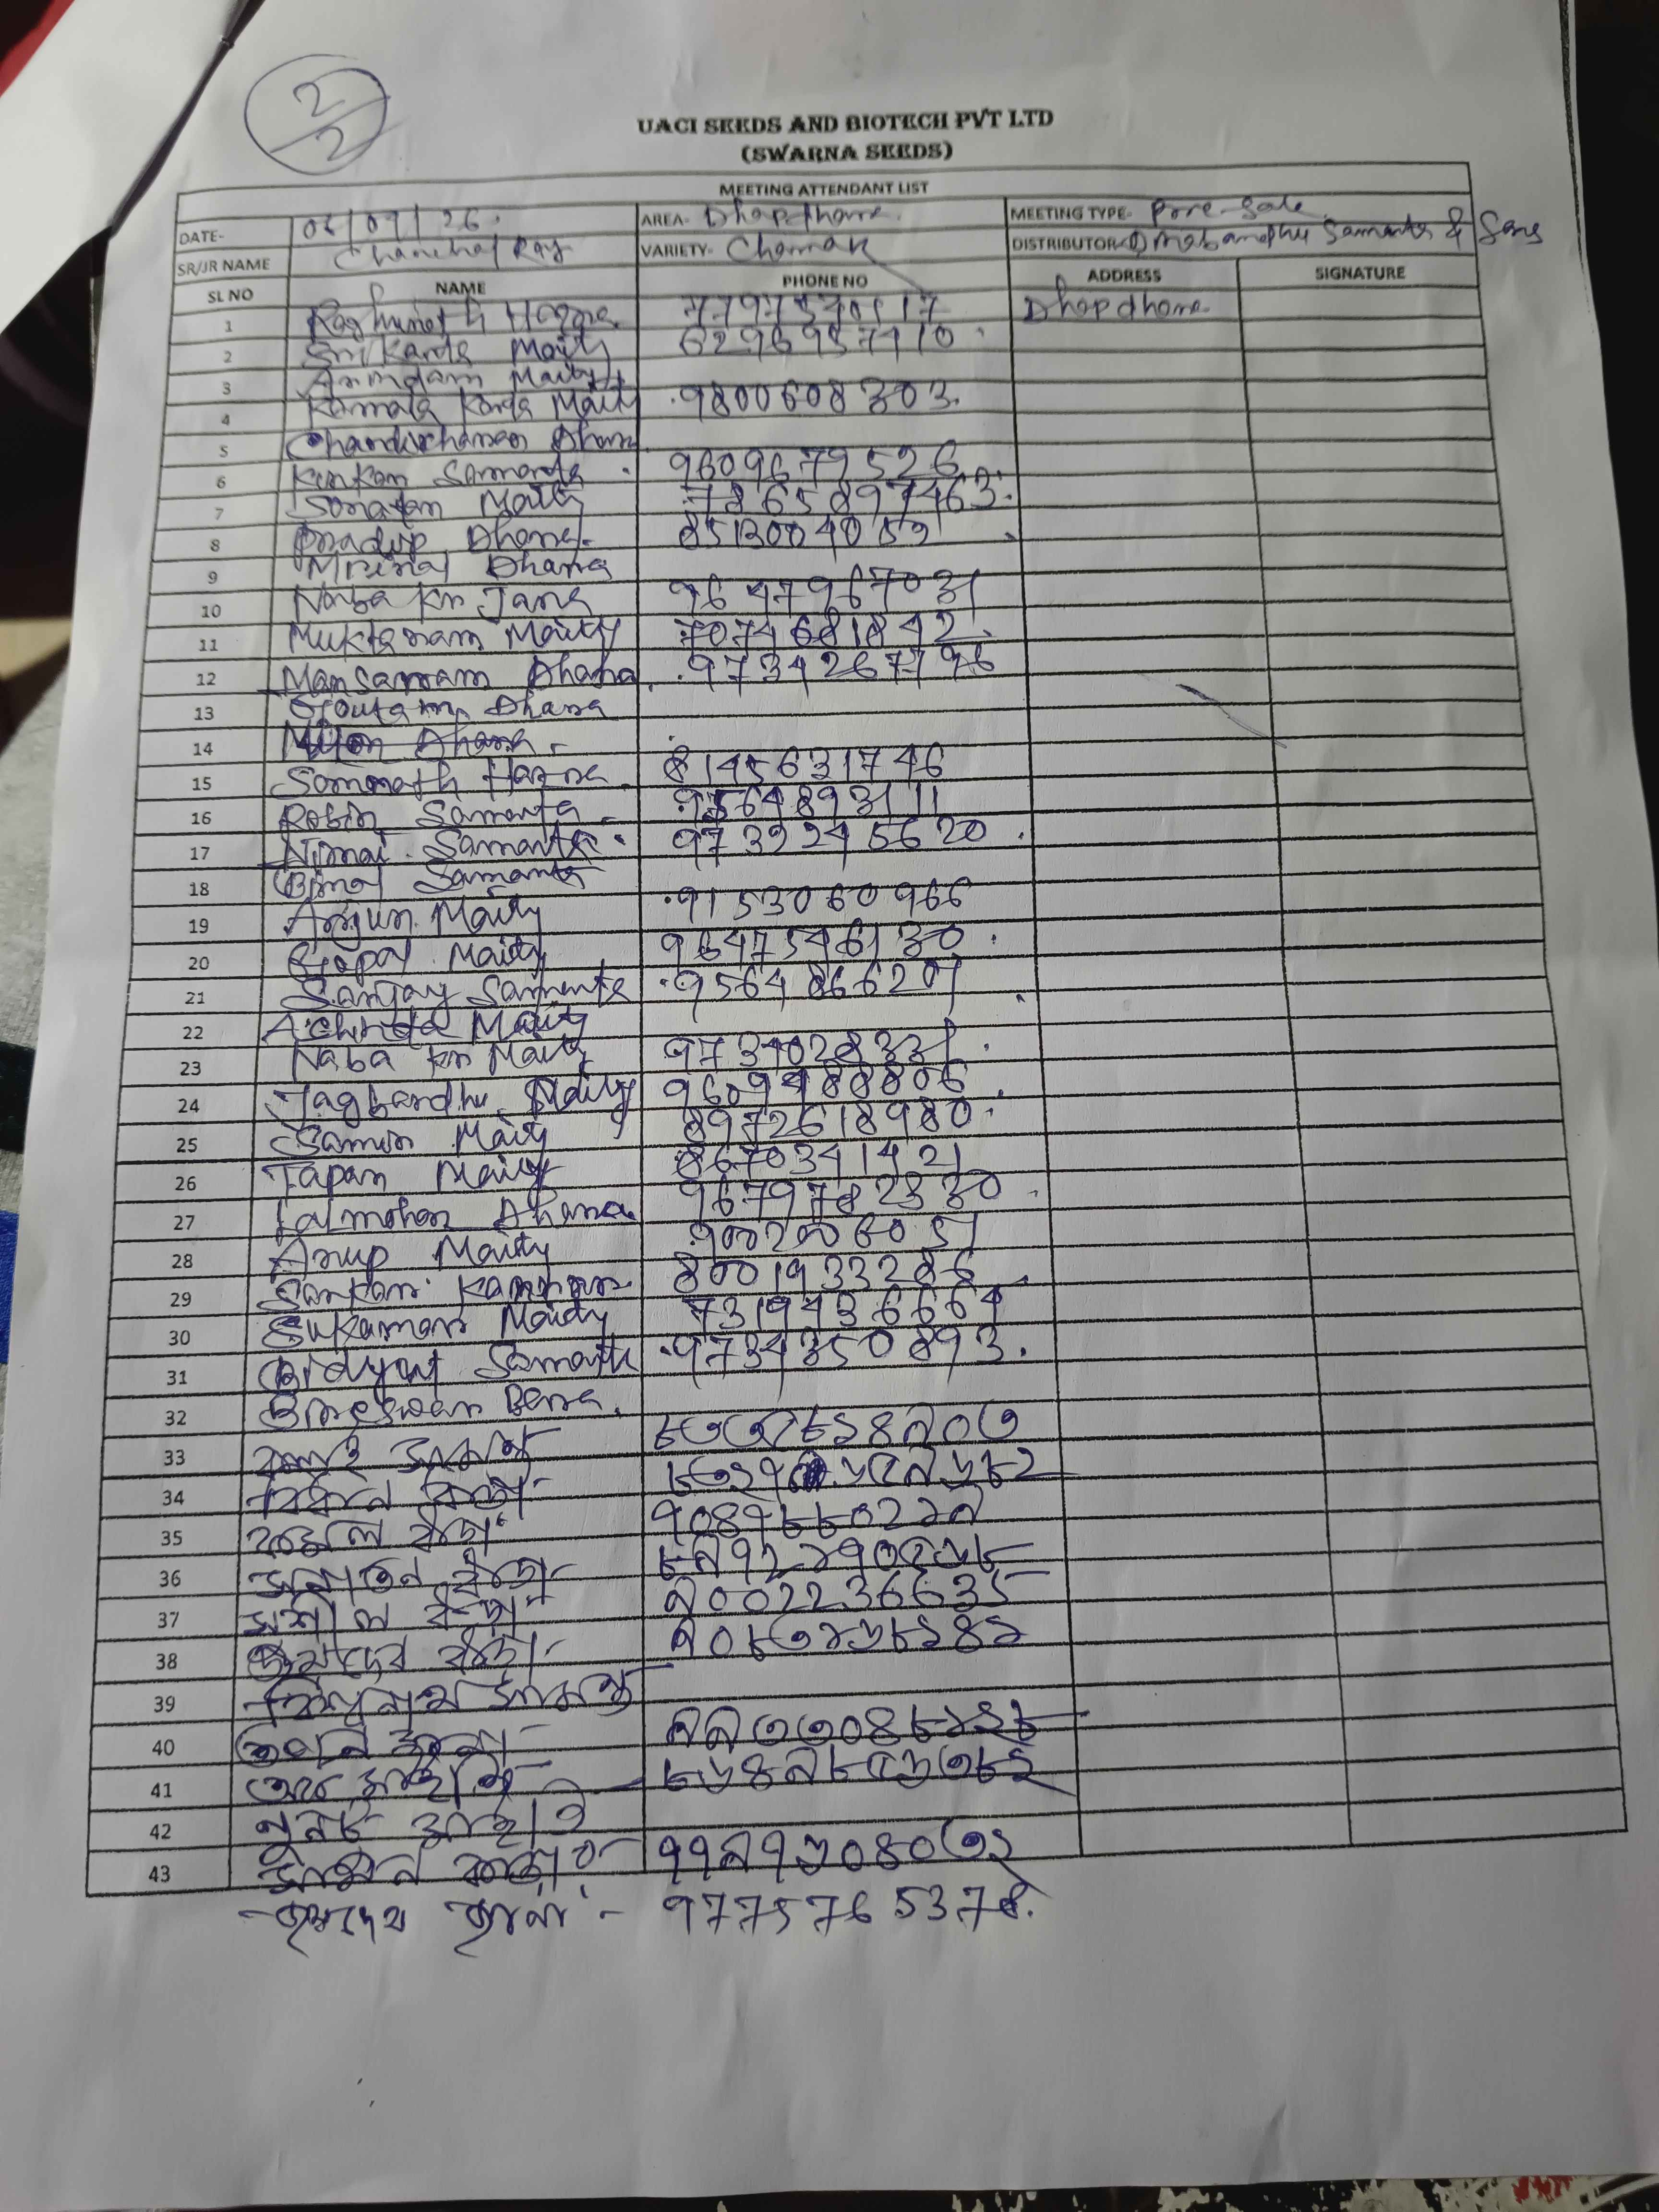 2/2
UACI SEEDS AND BIOTECH PVT LTD
(SWARNA SEEDS)
MEETING ATTENDANT LIST
DATE- 06/07/26. AREA- Dhapdhara. MEETING TYPE- Pore-Sale
SR/JR NAME Chanchal Ray VARIETY- Chamak DISTRIBUTOR- Samanta & Sons
SL NO NAME PHONE NO ADDRESS SIGNATURE
1 Raghunath Hazra Dhapdhara
2 Srikanta Maity 6296957410
3 Arindam Maity
4 Kamala Kanta Maity 9800608303.
5 Chandicharan Dhara
6 Kinkar Samanta 9609679526
7 Sonatan Maity 7865897463.
8 Pradip Dhara. 8513004059
9 Mrinal Dhara
10 Naba Kr Jana 9647967031
11 Muktaram Maity 7074681842.
12 Mansaram Dhara. 9734267796
13 Goutam Dhara
14 Miton Dhara.
15 Somnath Hazra 8145631746
16 Robin Samanta 9564893111
17 Nimai Samanta. 9732245620.
18 Bimal Samanta
19 Arjun Maity 9153060966
20 Gopal Maity 9647546130.
21 Sanjay Samanta 9564866207
22 Achinta Maity
23 Naba Kr Maity 9734028331.
24 Jagbandhu Maity 9609488806
25 Samir Maity 8972618980.
26 Tapan Maity 8670341421
27 Lalmohan Dhara. 9679782330.
28 Arup Maity 9002006051
29 Sankar 8001933286
30 Sukumar Maity 7319436664
31 Bidyut Samanta 9734350893.
32 Bera.
33 বলাই সামন্ত ৮৩৩৮১৪৯০৩
34
35 ৭০৪৭৮৮০২১৯
36 সনাতন ৮৯৭২১৭০৫৬৮
37 সুশীল ৯002236635
38 জয়দেব ৯০৮৩১৬৮১৪১
39 বিশ্বনাথ সামন্ত
40
41 মাইতি ৮৬৪৯৮৫৬৩৮২
42 মাইতি
43 ৭৭৯৭৬০৪০৩২
জয়দেব জানা - 9775765378.